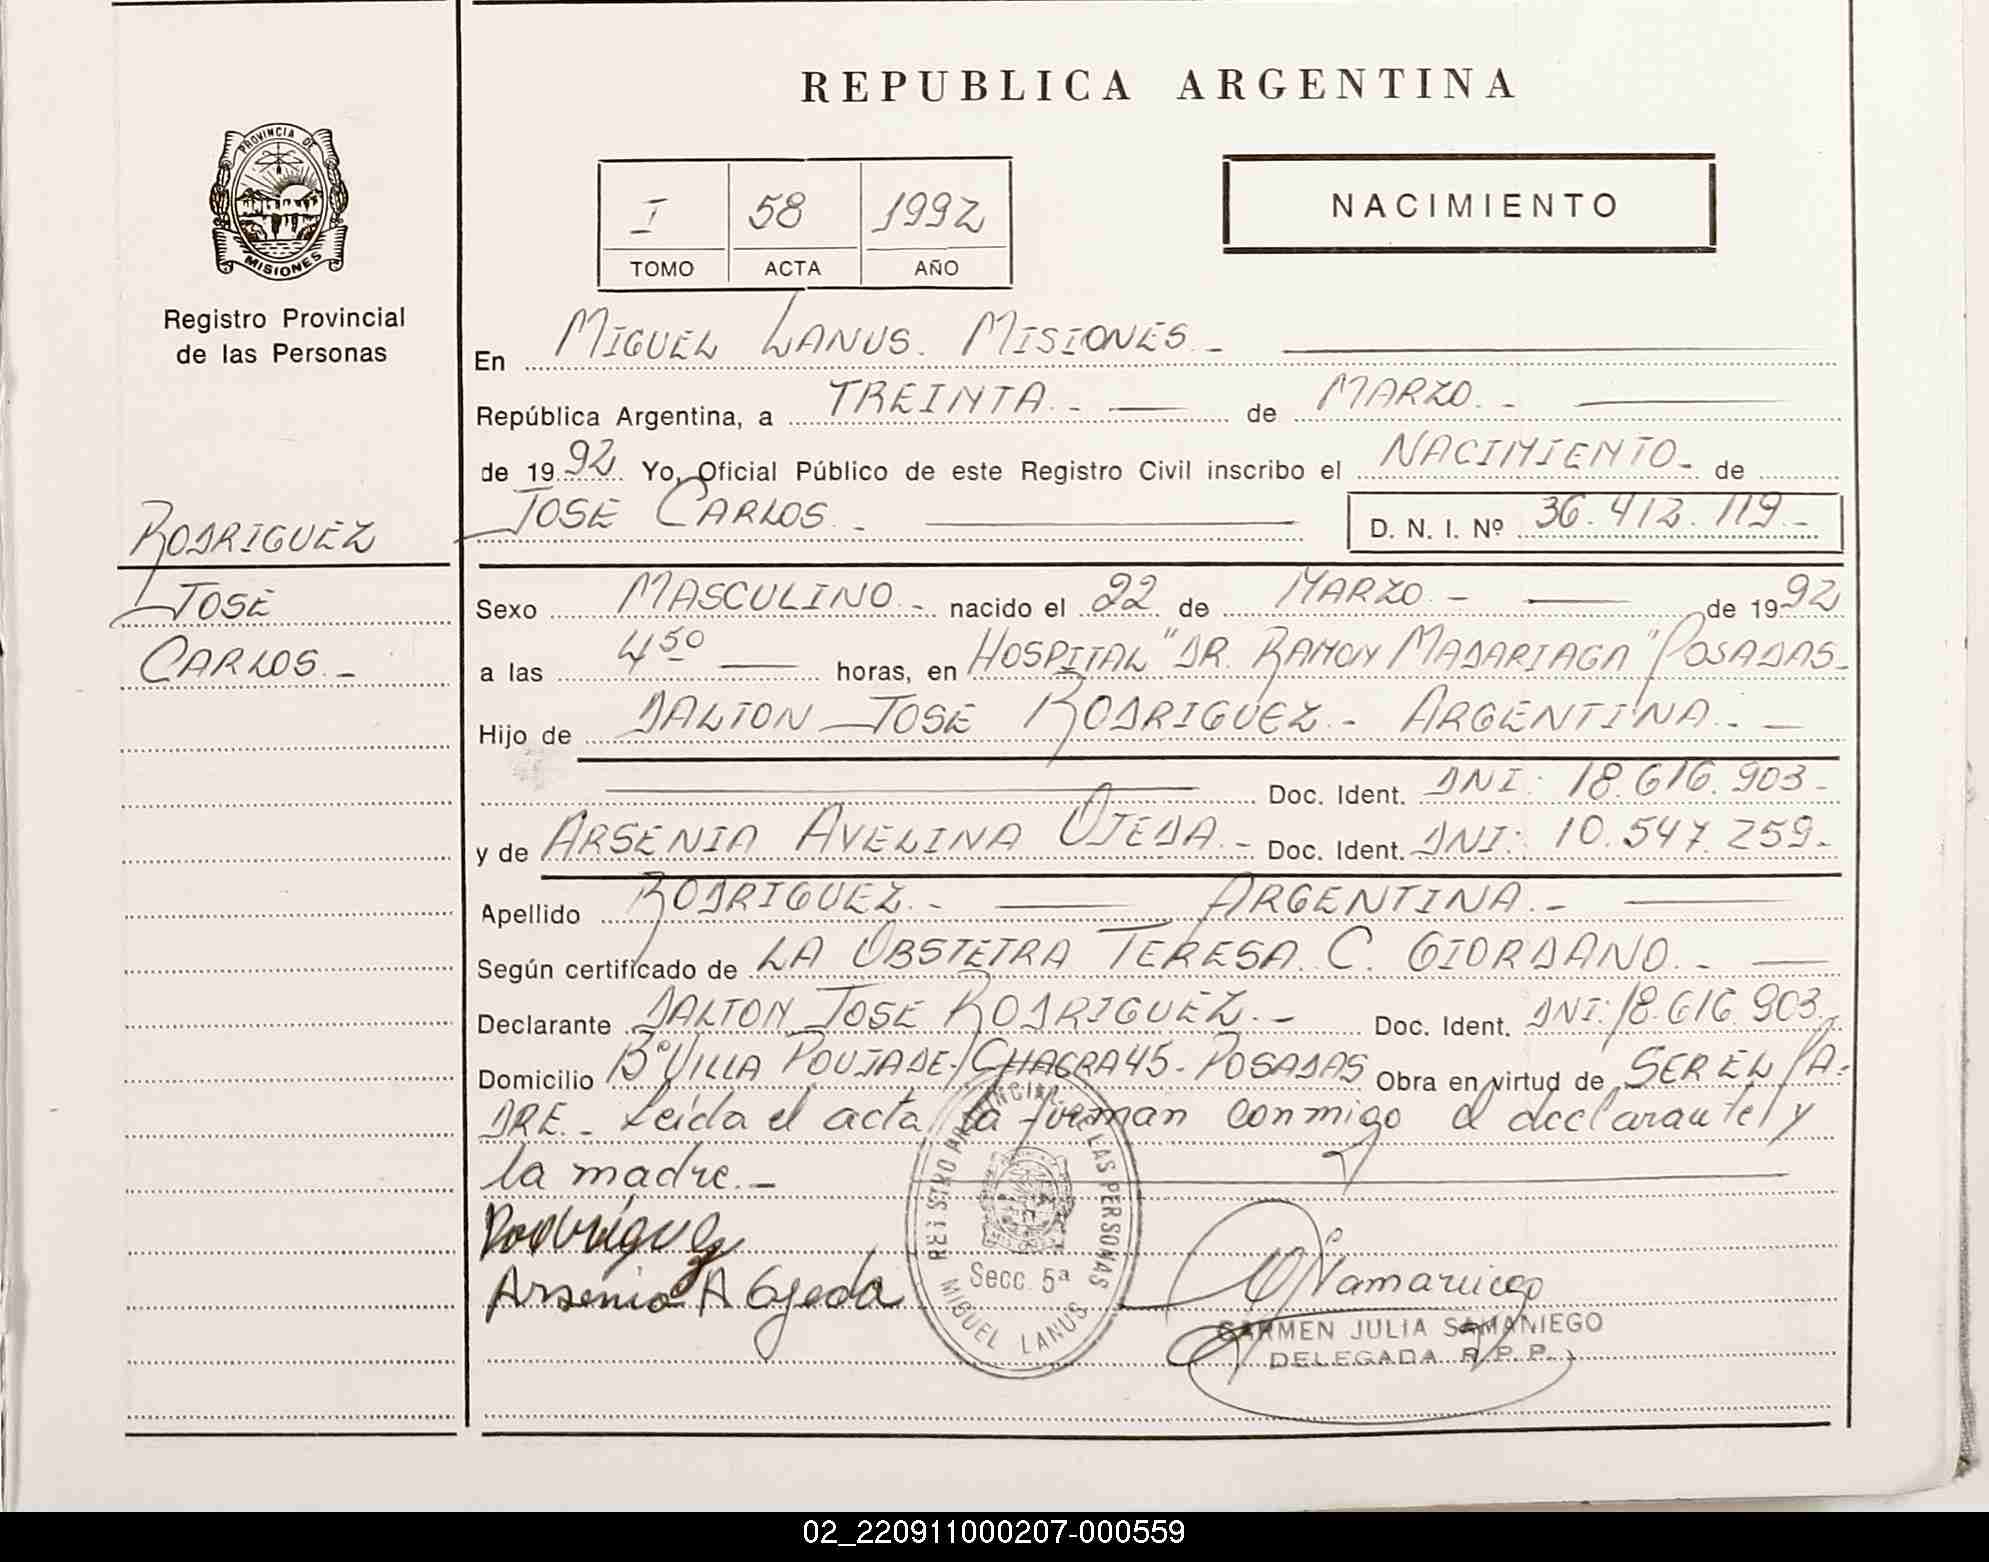 REPUBLICA ARGENTINA
PROVINCIA DE
MISIONES
Registro Provincial
de las Personas
I 58 1992
TOMO ACTA AÑO
NACIMIENTO
En MIGUEL LANUS. MISIONES.-
República Argentina, a TREINTA.- de MARZO.-
de 1992. Yo, Oficial Público de este Registro Civil inscribo el NACIMIENTO.- de
JOSE CARLOS.- D. N. I. Nº 36.412.119.-
RODRIGUEZ
JOSE
CARLOS.-
Sexo MASCULINO.- nacido el 22 de MARZO.- de 1992
a las 4 50 horas, en HOSPITAL "DR. RAMON MADARIAGA" POSADAS-
Hijo de DALTON JOSE RODRIGUEZ.- ARGENTINA.-
Doc. Ident. DNI: 18.616.903.-
y de ARSENIA AVELINA OJEDA.- Doc. Ident. DNI: 10.547.259.-
Apellido RODRIGUEZ.- ARGENTINA.-
Según certificado de LA OBSTETRA TERESA C. GIORDANO.-
Declarante DALTON JOSE RODRIGUEZ.- Doc. Ident. DNI: 18.616.903.-
Domicilio Bº VILLA POUJADE-CHACRA 45-POSADAS Obra en virtud de SER EL PA-
DRE.- Leída el acta, la firman conmigo el declarante y
la madre.-
Rodriguez
Arsenia A Ojeda
REGISTRO PROVINCIAL DE LAS PERSONAS
Secc. 5ª
MIGUEL LANUS
CARMEN JULIA SAMANIEGO
DELEGADA R.P.P.
02_220911000207-000559